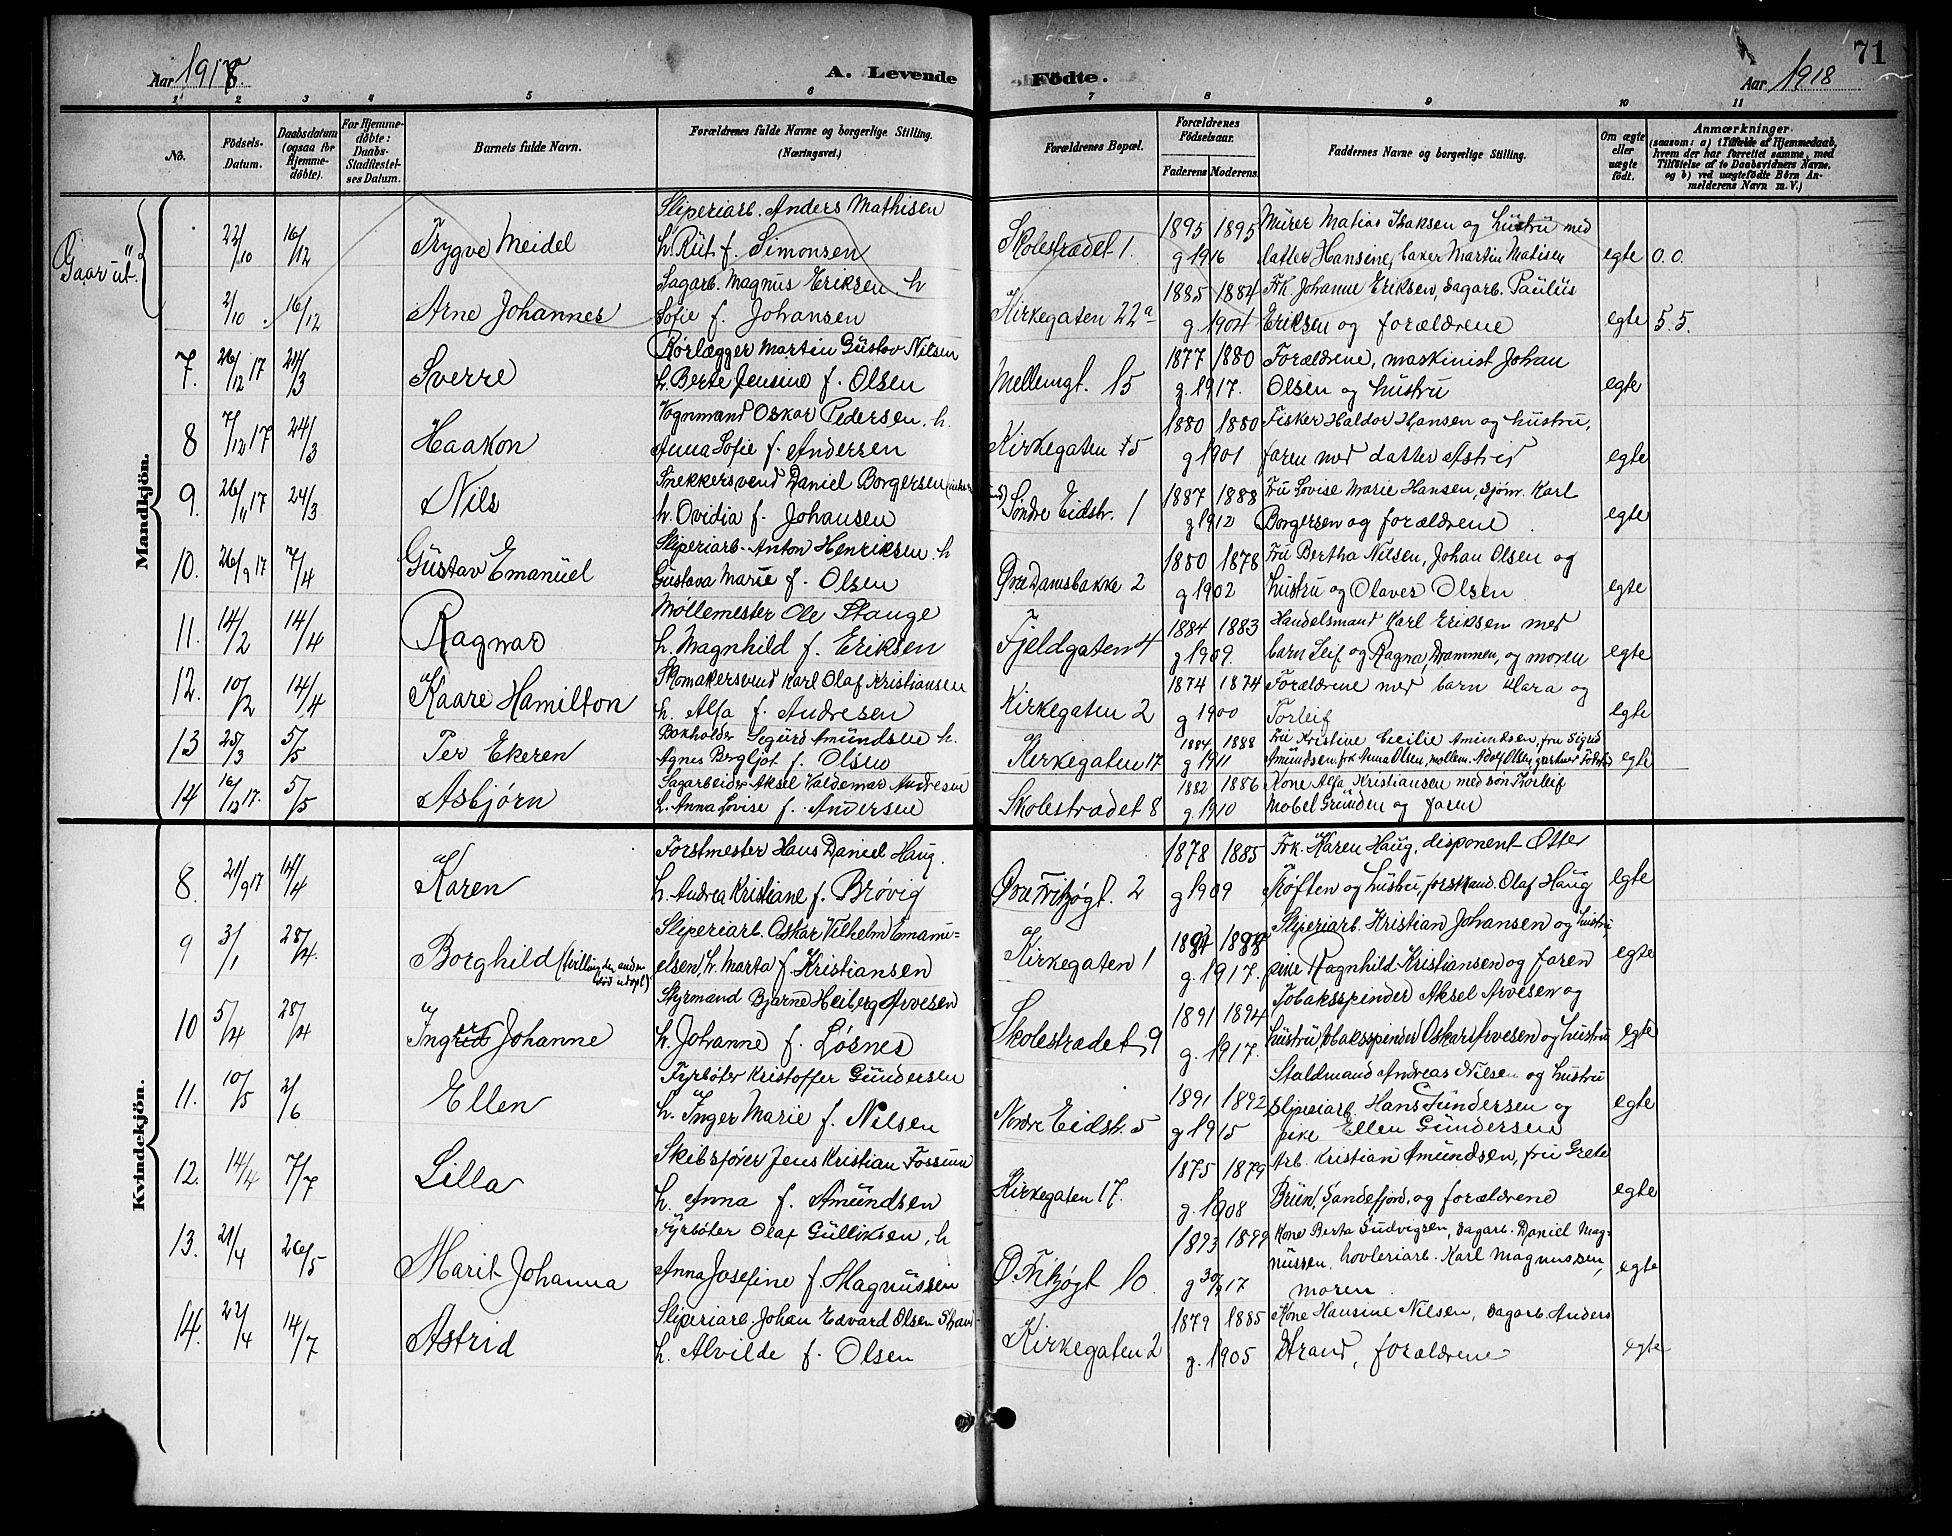 71
Aar 1918.
A. Levende Födte.
Aar 1918
1 2 3 4 5 6 7 8 9 10 11
No.
Födsels-Datum.
Daabsdatum (ogsaa for Hjemmedöbte).
For Hjemmedöbte: Daabs-Stadfestelses Datum.
Barnets fulde Navn.
Forældrenes fulde Navne og borgerlige Stilling. (Næringsvei.)
Forældrenes Bopæl.
Forældrenes Födselsaar.
Faderens. Moderens.
Faddernes Navne og borgerlige Stilling.
Om ægte eller uægte födt.
Anmærkninger
(saasom: a) i Tilfælde af Hjemmedaab, hvem der har forrettet samme, med Tilföielse af to Daabsvidners Navne, og b) ved uægtefödte Börn Anmelderens Navn m. V.)
Gaar ut.
Mandkjön.
22/10 16/12 Trygve Meidel
Sliperiarb. Anders Mathisen
h. Rut f. Simonsen
Skolestrædet 1. 1895 1895 g 1916
Murer Matias Isaksen og hustru med
datter Hansine, baker Martin Matisen
egte 0.0.
2/10 16/12 Arne Johannes
Sagarb. Magnus Eriksen, h
Sofie f. Johansen
Kirkegaten 22a 1885 1884 g. 1904
Frk. Johanne Eriksen, sagarb. Paulus
Eriksen og forældrene
egte 5.5.
7. 26/12 17 24/3 Sverre
Rörlægger Martin Gustav Nilsen
h. Berte Jensine f. Olsen
Mellemgt. 15 1877 1880 g. 1917.
Forældrene, maskinist Johan
Olsen og hustru
egte
8 7/12 17 24/3 Haakon
Vognmand Oskar Pedersen, h.
Anna Sofie f. Andersen
Kirkegaten 45 1880 1880 g 1901
Fisker Haldor Hansen og hustru,
faren med datter Astrid
egte
9. 26/11 17 24/3 Nils
Snekkersvend Daniel Borgersen
h. Ovidia f. Johansen
Søndre Eidstr. 1 1887 1888 g 1912
Fru Lovise Marie Hansen, sjøm. Karl
Borgersen og forældrene
egte
10. 26/9 17 7/4 Gustav Emanuel
Sliperiarb. Anton Henriksen. h
Gustava Marie f. Olsen
Øvre Damsbakke 2 1880 1878 g 1902
Fru Bertha Nilsen, Johan Olsen og
hustru og Olaves Olsen
egte
11. 14/2 14/4 Ragnar
Møllemester Ole Stange
h. Magnhild f. Eriksen
Fjeldgaten 4 1884 1883 g 1909.
Handelsmand Karl Eriksen med
barn Leif og Ragna, Drammen, og moren
egte
12. 10/2 14/4 Kaare Hamilton
Skomakersvend Karl Olaf Kristiansen
h. Alfa f. Andresen
Kirkegaten 2 1874 1874 g 1900
Forældrene med barn Klara og
Torleif
egte
13 25/3 5/5 Per Ekeren
Bokholder Sigurd Amundsen h.
Agnes Bergljot f. Olsen
Kirkegaten 17 1884 1888 g 1911
Fru Kristine Cecilie Amundsen, fru Sigrid
Amundsen, frk Anna Olsen, møllem. Adolf Olsen, gartner
egte
14 16/12 17. 5/5 Asbjørn
Sagarbeider Aksel Valdemar Andresen
h. Anna Lovise f. Andersen
Skolestrædet 8 1882 1886 g. 1910
Kone Alfa Kristiansen med søn Thorleif
Mobel Grunden og faren
Kvindekjön.
8 21/9 17 14/4 Karen
Forstmester Hans Daniel Haug.
h. Andrea Kristiane f. Brøvig
Øvre Fritzøgt. 2 1878 1885 g 1909
Frk. Karen Haug, disponent Otter
Røften og hustru, forstkand. Olaf Haug
egte
9 3/1 28/4. Borghild (tvilling den anden død udøpt)
Sliperiarb. Oskar Vilhelm Emanu-
elsen, h. Marta f. Kristiansen
Kirkegaten 1 g. 1917.
Sliperiarb. Kristian Johansen og hustru,
pike Ragnhild Kristiansen og faren
egte
10 5/4 28/4 Johanne
Styrmand Bjarne Heiberg Arvesen
h. Johanne f. Løsnes
Skolestrædet 9 1891 1894 g. 1917.
Tobaksspinder Aksel Arvesen og
hustru, tobaksspinder Oskar Arvesen og hustru
egte
11. 10/5 2/6 Ellen
Fyrbøter Kristoffer Gundersen
h. Inger Marie f. Nilsen
Nordre Eidstr. 5 1891 1892 g 1915
Staldmand Andreas Nilsen og hustru
sliperiarb. Hans Gundersen og
pike Ellen Gundersen
egte
12. 14/4 7/7 Lilla
Skibsfører Jens Kristian Fossum
h. Anna f. Amundsen
Kirkegaten 17. 1875 1879 g. 1908
Arb. Kristian Amundsen, fru Grete
Bruun, Sandefjord, og forældrene
egte
13. 21/4 26/5 Marit Johanna
Fyrbøter Olaf Gulliksen, h
Anna Josefine f. Magnussen
Ø. Fritzøgt 10. 1893 1899 g 30/9 17
Kone Berta Ludvigsen, sagarb. Daniel Mag-
nussen, hovleriarb. Karl Magnussen,
moren.
egte
14. 22/4 14/7 Astrid
Sliperiarb. Johan Edvard Olsen Strand
h. Alvilde f. Olsen
Kirkegaten 2 1879 1885 g. 1905
Kone Hansine Nilsen, sagarb. Anders
Strand, forældrene
egte